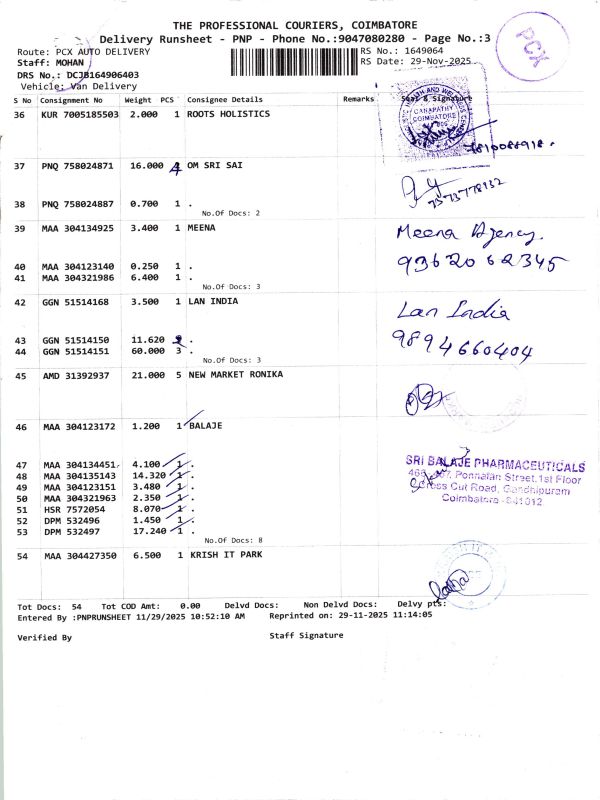 THE PROFESSIONAL COURIERS, COIMBATORE
Delivery Runsheet - PNP - Phone No.:9047080280 - Page No.:3
PCX
Route: PCX AUTO DELIVERY
RS No.: 1649064
Staff: MOHAN
RS Date: 29-Nov-2025
DRS No.: DCJB164906403
Vehicle: Van Delivery
S No Consignment No Weight PCS Consignee Details Remarks Seal & Signature
36 KUR 7005185503 2.000 1 ROOTS HOLISTICS
GANAPATHY
COIMBATORE
37 PNQ 758024871 16.000 4 OM SRI SAI
7573778132
38 PNQ 758024887 0.700 1 .
No.Of Docs: 2
39 MAA 304134925 3.400 1 MEENA
Meena Agency.
9362062345
40 MAA 304123140 0.250 1 .
41 MAA 304321986 6.400 1 .
No.Of Docs: 3
42 GGN 51514168 3.500 1 LAN INDIA
Lan India
9894660404
43 GGN 51514150 11.620 .
44 GGN 51514151 60.000 3 .
No.Of Docs: 3
45 AMD 31392937 21.000 5 NEW MARKET RONIKA
46 MAA 304123172 1.200 1 BALAJE
47 MAA 304134451 4.100 1 .
48 MAA 304135143 14.320 1 .
49 MAA 304123151 3.480 1 .
50 MAA 304321963 2.350 1 .
51 HSR 7572054 8.070 1 .
52 DPM 532496 1.450 1 .
53 DPM 532497 17.240 1 .
No.Of Docs: 8
SRI BALAJE PHARMACEUTICALS
Ponnaian Street, 1st Floor
Cross Cut Road, Gandhipuram
Coimbatore - 641012
54 MAA 304427350 6.500 1 KRISH IT PARK
Tot Docs: 54 Tot COD Amt: 0.00 Delvd Docs: Non Delvd Docs: Delvy pts:
Entered By :PNPRUNSHEET 11/29/2025 10:52:10 AM Reprinted on: 29-11-2025 11:14:05
Verified By Staff Signature